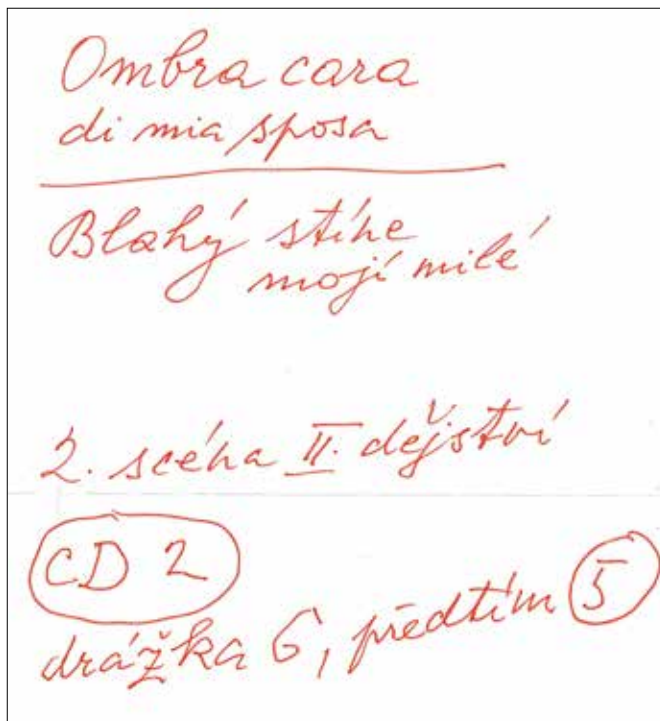 Ombra cara
di mia sposa
Blahý stíne
mojí milé
2. scéna II. dějství
CD 2
drážka 6, předtím 5